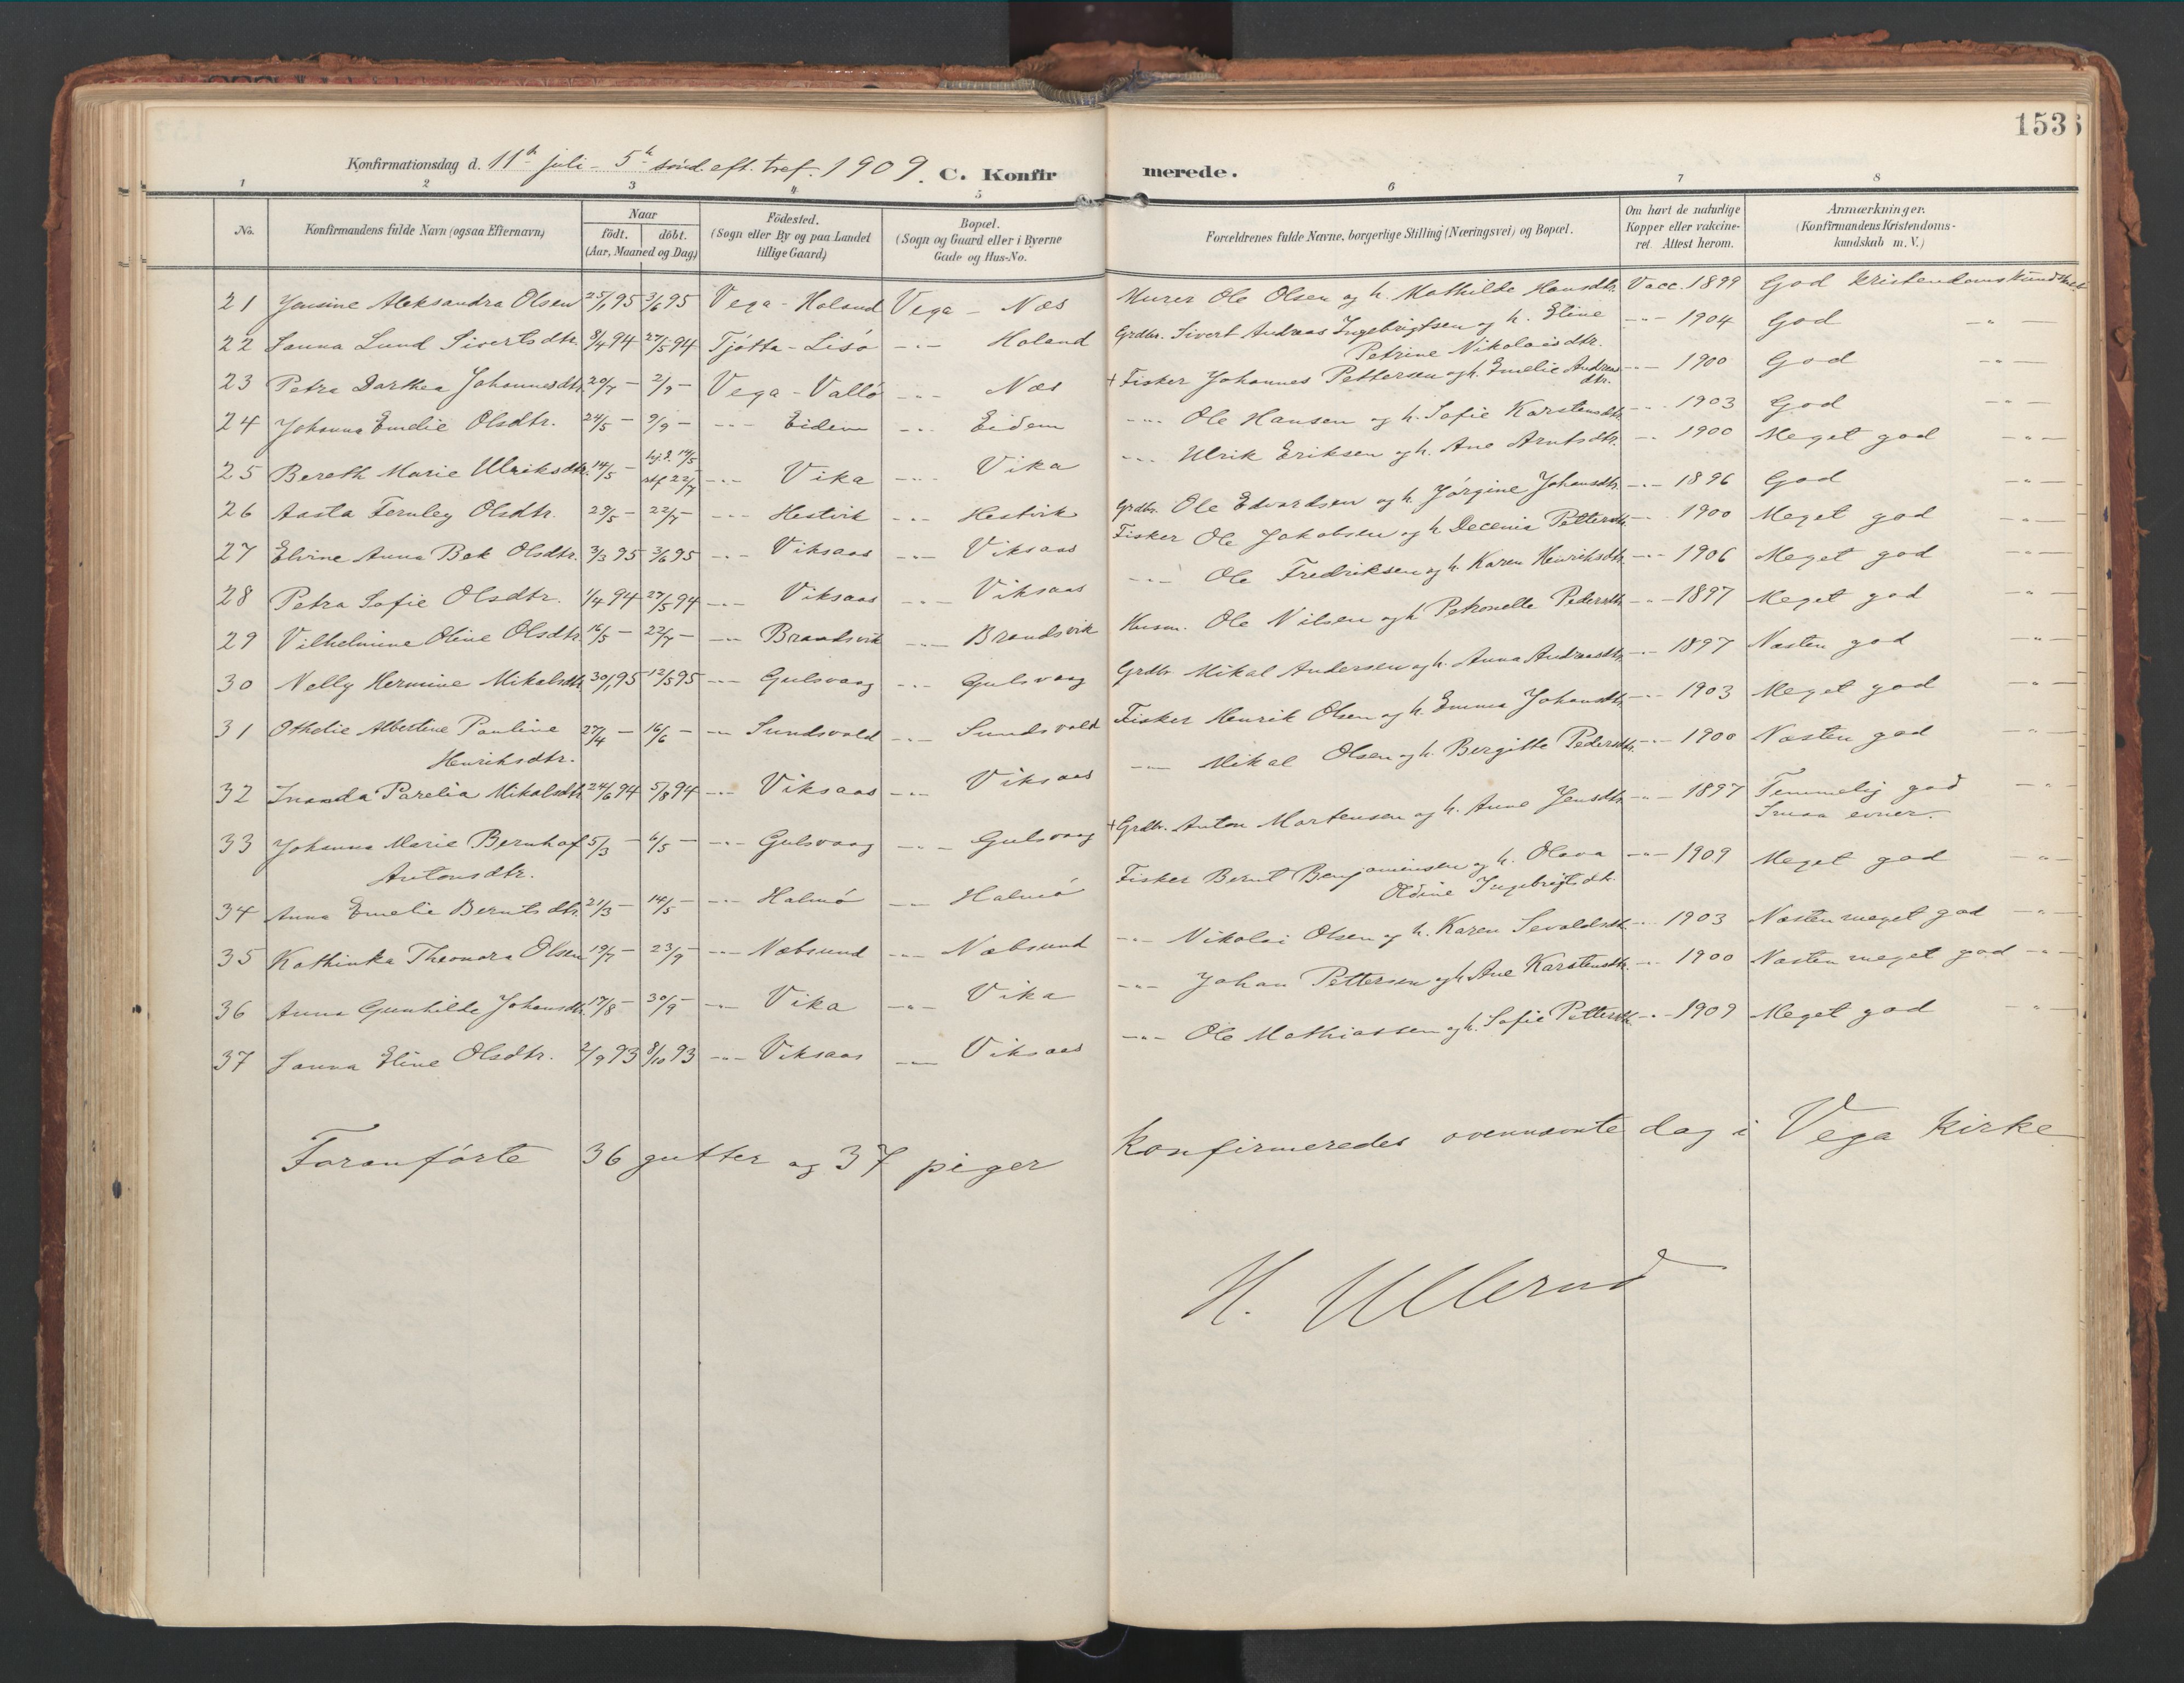 153
Konfirmationsdag d. 11te juli - 5te sönd. eft. tref. 1909. C. Konfirmerede.
1 2 3 4 5 6 7 8
No. Konfirmandens fulde Navn (ogsaa Efternavn) Naar födt. döbt. (Aar, Maaned og Dag) Födested. (Sogn eller By og paa Landet tillige Gaard) Bopæl. (Sogn og Gaard eller i Byerne Gade og Hus-No. Forældrenes fulde Navne, borgerlige Stilling (Næringsvei) og Bopæl. Om havt de naturlige Kopper eller vakcineret. Attest herom. Anmærkninger. (Konfirmandens Kristendomskundskab m. V.)
21 Jensine Aleksandra Olsen 25/1 95 3/6 95 Vega - Holand Vega - Næs Murer Ole Olsen og h. Mathilde Hansdtr. Vacc. 1899 God Kristendomskundskab
22 Sanna Lund Sivertsdtr. 8/4 94 27/5 94 Tjötta - Lisö -"- Holand Grdbr. Sivert Andreas Ingebrigtsen og h. Eline Petrine Nikolaisdtr. -"- 1904 God -"-
23 Petra Darthea Johannesdtr. 20/7 - 2/9 - Vega - Vallö -"- Næs + Fisker Johannes Pettersen og h. Emelie Andreasdtr. -"- 1900 God -"-
24 Johanna Emelie Olsdtr. 24/5 - 9/9 - -"- Eidem -"- Eidem -"- Ole Hansen og h. Sofie Karstensdtr. -"- 1903 God -"-
25 Bereth Marie Ulriksdtr. 14/5 - hj.d. 14/5 stf 22/7 -"- Vika -"- Vika -"- Ulrik Eriksen og h. Ane Arntsdtr. -"- 1900 Meget god -"-
26 Aasta Fernley Olsdtr. 29/5 - 22/7 - -"- Hestvik -"- Hestvik Grdbr. Ole Edvardsen og h. Jörgine Johansdtr. -"- 1896 God -"-
27 Elvine Anna Bak Olsdtr. 3/3 95 3/6 95 -"- Viksaas -"- Viksaas Fisker Ole Jakobsen og h. Decenia Pettersdtr. -"- 1900 Meget god -"-
28 Petra Sofie Olsdtr. 1/4 94 27/5 94 -"- Viksaas -"- Viksaas -"- Ole Fredriksen og h. Karen Henriksdtr. -"- 1906 Meget god -"-
29 Vilhelmine Oline Olsdtr. 16/5 - 22/7 - -"- Brandsvik -"- Brandsvik Husm. Ole Nilsen og h. Petronelle Pedersdtr. -"- 1897 Meget god -"-
30 Nelly Hermine Mikalsdtr. 30/1 95 12/5 95 -"- Gulsvaag -"- Gulsvaag Grdbr. Mikal Andersen og h. Anna Andreasdtr. -"- 1897 Næsten god -"-
31 Othelie Albertine Pauline Henriksdtr. 27/4 - 16/6 - -"- Sundsvold -"- Sundsvold Fisker Henrik Olsen og h. Emma Johansdtr. -"- 1903 Meget god -"-
32 Inanda Parelia Mikalsdtr. 24/6 94 5/8 94 -"- Viksaas -"- Viksaas -"- Mikal Olsen og h. Bergitte Pedersdtr. -"- 1900 Næsten god -"-
33 Johanna Marie Bernhof Antonsdtr. 5/3 - 6/5 - -"- Gulsvaag -"- Gulsvaag + Grdbr. Anton Mortensen og h. Anne Jensdtr. -"- 1897 Temmelig god Smaa evner. -"-
34 Anna Emelie Berntsdtr. 21/3 - 14/5 - -"- Halmö -"- Halmö Fisker Bernt Benjaminsen og h. Olava Oldine Ingebrigtsdtr. -"- 1909 Meget god -"-
35 Kathinka Theonora Olsen 19/7 - 23/9 - -"- Næbsund -"- Næbsund -"- Nikolai Olsen og h. Karen Sevaldsdtr. -"- 1903 Næsten meget god -"-
36 Anna Gunhilde Johansdtr. 17/8 - 30/9 - -"- Vika -"- Vika -"- Johan Pettersen og h. Ane Karstensdtr. -"- 1900 Næsten meget god -"-
37 Sanna Eline Olsdtr. 2/9 93 8/10 93 -"- Viksaas -"- Viksaas -"- Ole Mathiassen og h. Sofie Pettersdtr. -"- 1909 Meget god -"-
Foranförte 36 gutter og 37 piger konfirmeredes ovennævnte dag i Vega kirke
H. Ullerud